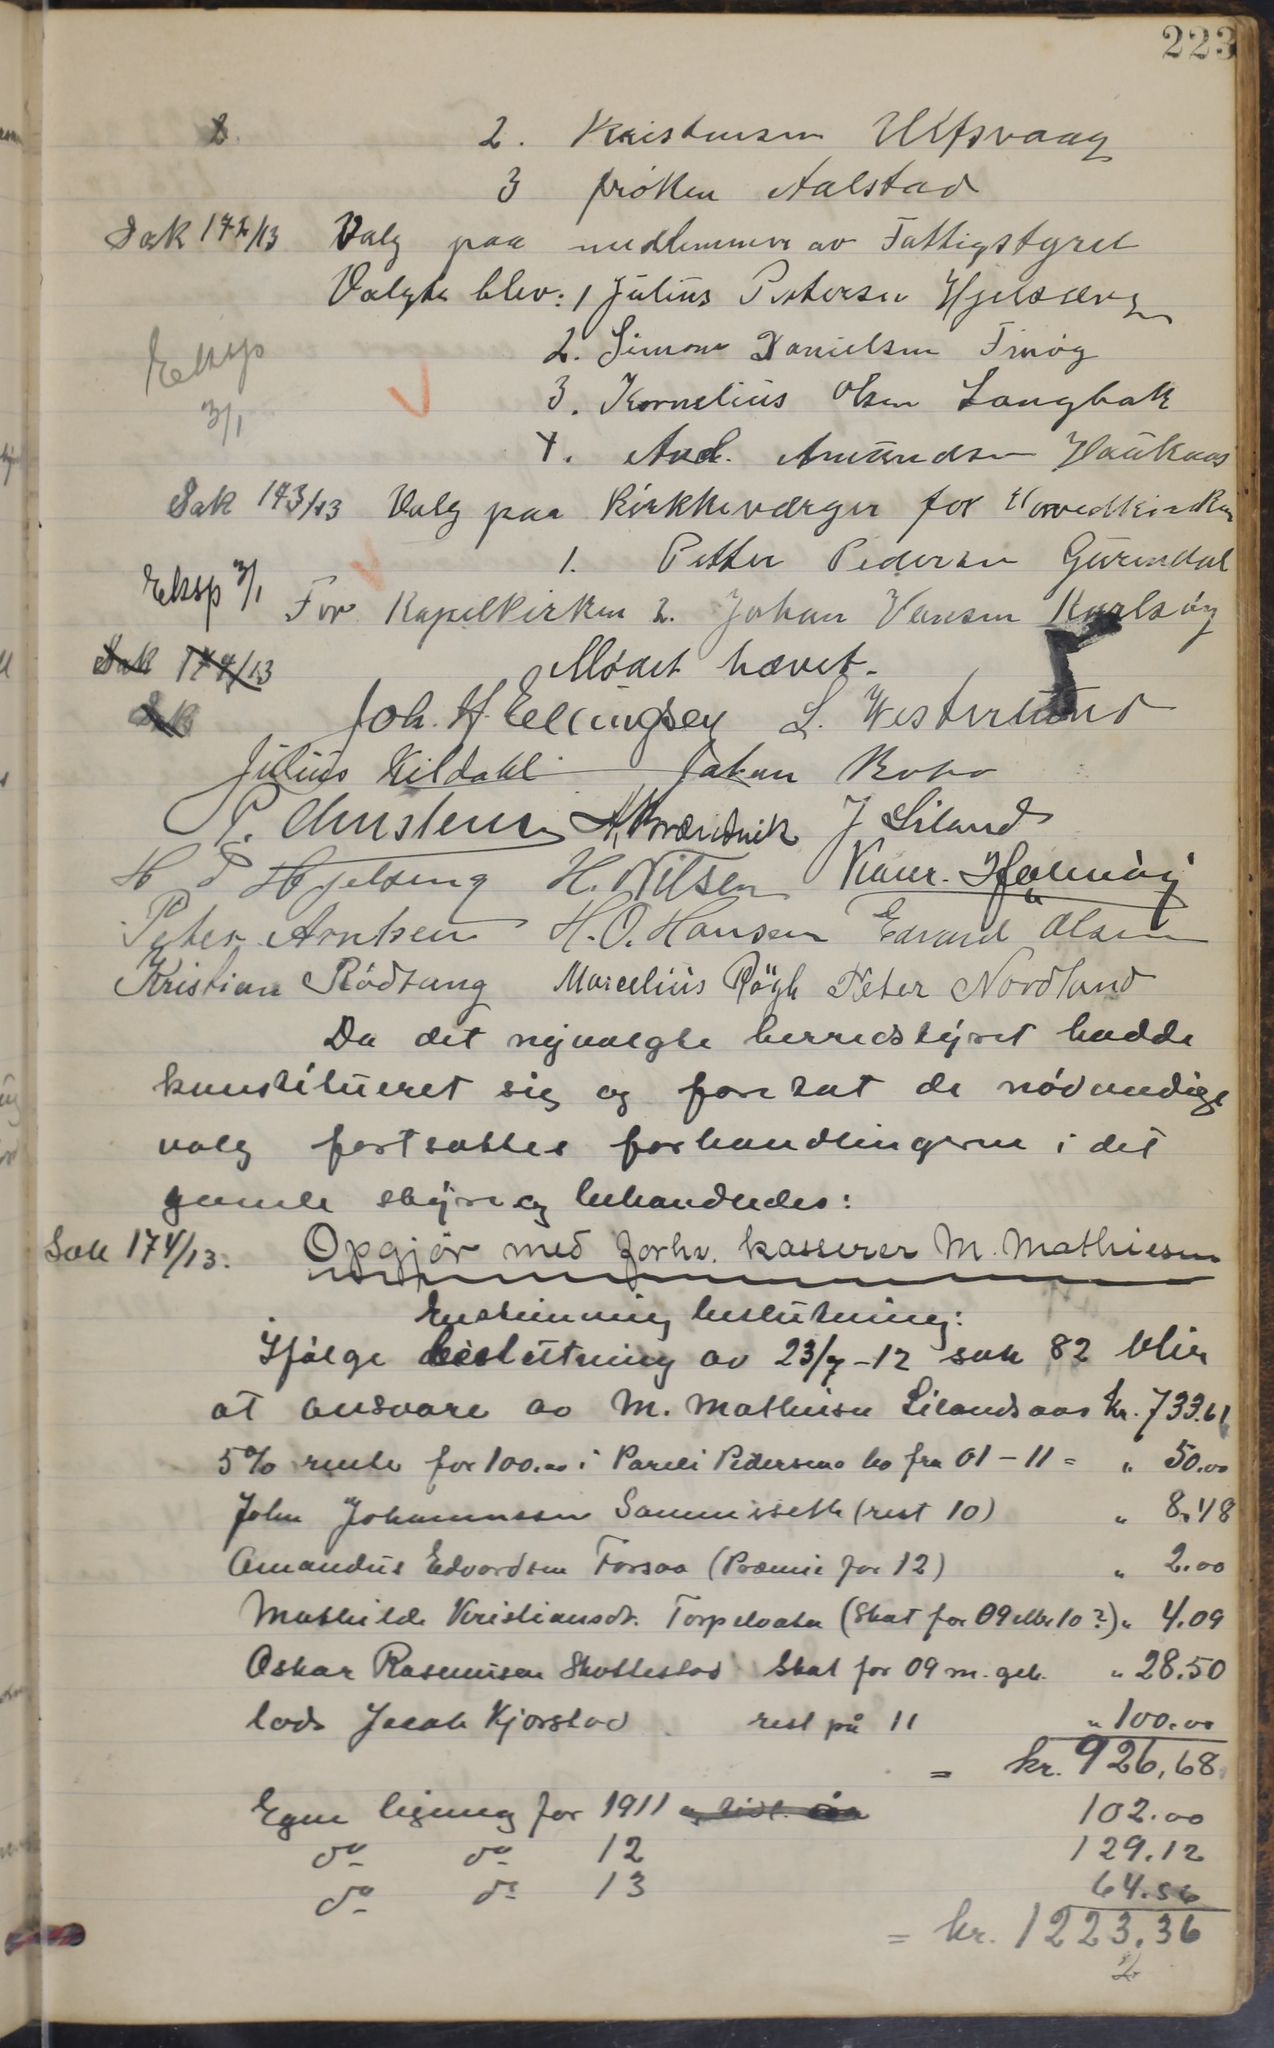 223
2. Kristensen Ulfsvaag
3 frøken Aalstad
Sak 172/13 Valg paa medlemmer av Fattigstyret
Valgte blev: 1 Julius Petersen Hjelseng
2. Simon Danielsen Finöy
Eksp 3/1
3. Kornelius Olsen Langbak
4. And. Amundsen Haukaas
Sak 173/13 Valg paa Kirkeværger for Hovedkirken
1. Petter Pedersen Gurendal
Eksp 3/1 For Kapelkirken 2. Johan Hansen Karlsöy
Sak 174/13 Mødet hævet.
Sak
Joh. H. Ellingsen L. Westerlund
Julius Kildahl Johan
P. Christensen J Liland
H P Hjelseng H. Nilsen
Peter Arntsen H. O. Hansen Edvard Olsen
Kristian Rödtang Marcelius Rögh Peter Nordland
Da det nyvalgte herredstyret hadde
konstitueret sig og foretat de nödvendige
valg fortsattes forhandlingerne i det
gamle styre og behandledes:
Sak 174/13. Opgjör med forhv. kasserer M. Mathiesen
Enstemmig beslutning:
Ifölge beslutning av 23/7-12 sak 82 blir
at ansvare av M. Mathisen Lilandsaas kr. 733.61
5% rente for 100.00 i Pareli Pedersens bo fra 01-11 = " 50.00
John Johannessen Sommerseth (rest 10) " 8.48
Amandus Edvardsen Forsaa (Præmie for 12) " 2.00
Mathilde Kristiansdt. Torpelvaten (Skat for 09 eller 10?) " 4.09
Oskar Rasmusen Skottestad Skat for 09 m. geb. " 28.50
lods Jacob Kjørstad rest på 11 " 100.00
= kr. 926,68
Egen ligning for 1911 102.00
do do 12 129.12
do do 13 64.56
= kr. 1223.36
2